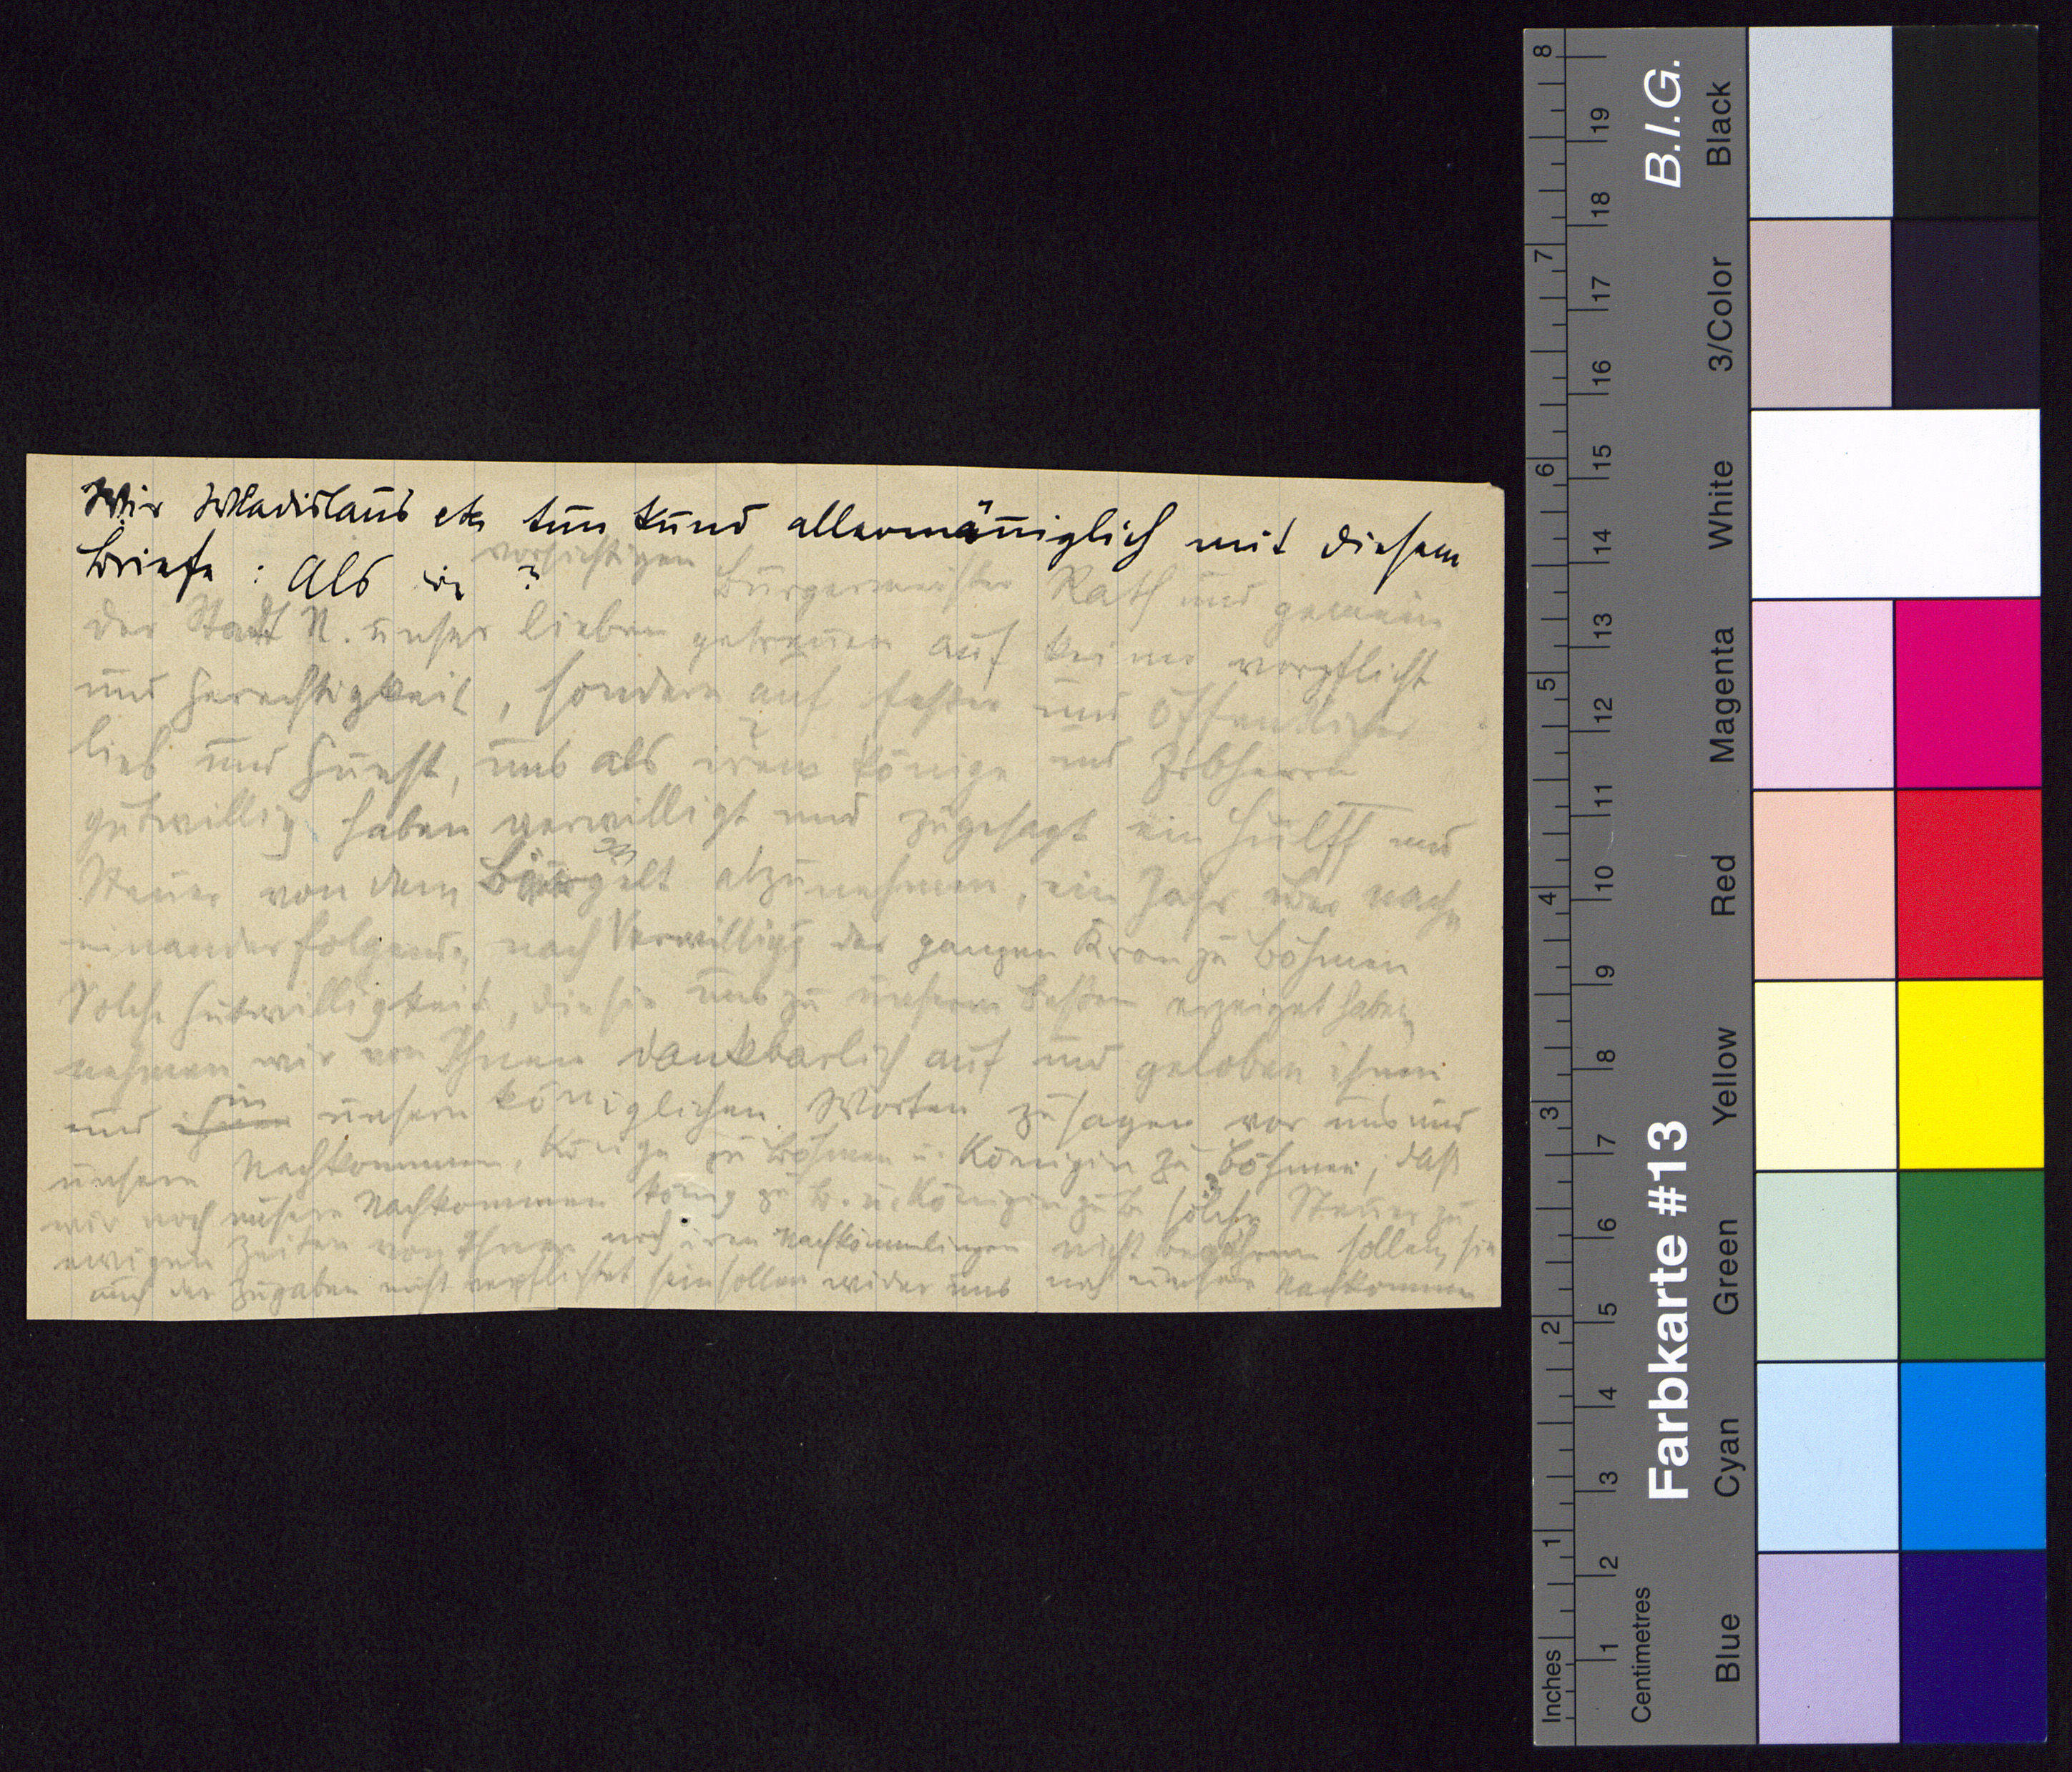 Wir Wladislaus etc tun kund allermänniglich mit diesem
Briefe : Als die ? vorsichtigen Bürgermeister Rath und gemein
der Stadt N. unser lieben getreuen auf keiner verpflicht
und Gerechtigkeit, sondern auf fester und öffentlicher
lieb und Gunst, uns als iren Könige und Erbherrn
gutwillig haben verwilligt und zugesagt ein Hülff und
Steuer von dem Biergelt abzunehmen, ein Jahr nach
einanderfolgend, nach Verwillig der ganzen Kron zu Böhmen
Solche Gutwilligkeit, die sie uns zu unserm besten erzeiget haben
nehmen wir von Ihnen dankbarlich auf und geloben ihnen
und ihnen in unsern königlichen Worten zusagen vor uns und
unsern Nachkommen, Könige zu Böhmen u. Königin zu Böhmen, dass
wir noch unsere Nachkommen König zu B. u. Königin zu B solche Steuer zu
ewigen Zeiten von Ihnen noch iren Nachkömmlingen nicht begehren sollen, sie
auch der zugeben nicht verpflichtet sein sollen wider uns noch unsere Nachkommen
8
7
6
5
4
3
2
1
Inches
19
18
17
16
15
14
13
12
11
10
9
8
7
6
5
4
3
2
1
Centimetres
B.I.G.
Farbkarte #13
Black
3/Color
White
Magenta
Red
Yellow
Green
Cyan
Blue